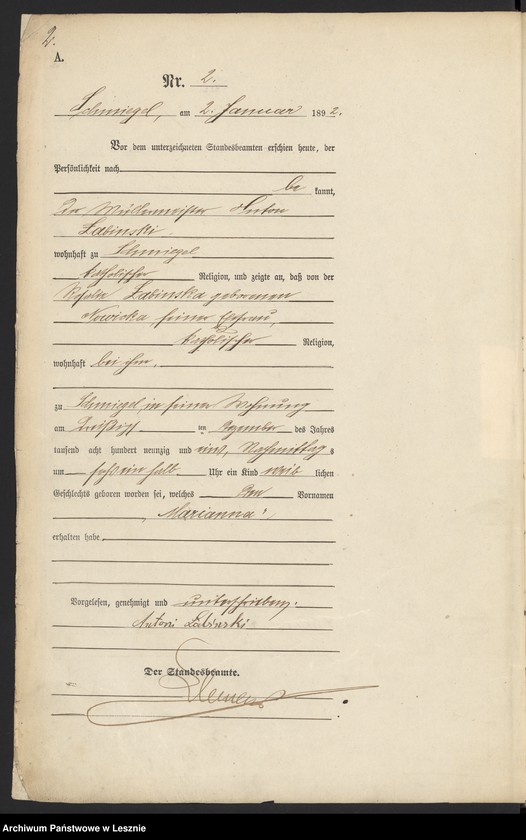 2.
A.
Nr. 2.
Schmiegel, am 2. Januar 1892.
Vor dem unterzeichneten Standesbeamten erschien heute, der
Persönlichkeit nach
be kannt,
der Müllermeister Anton
Labinski
wohnhaft zu Schmiegel
katholischer Religion, und zeigte an, daß von der
Rosalie Labinska geborenen
Nowicka, seiner Ehefrau,
katholischer Religion,
wohnhaft bei ihm,
zu Schmiegel in seiner Wohnung
am dreißigsten Dezember des Jahres
tausend acht hundert neunzig und eins, Nachmittags
um sechs ein halb Uhr ein Kind weib lichen
Geschlechts geboren worden sei, welches den Vornamen
Marianna
erhalten habe.
Vorgelesen, genehmigt und unterschrieben.
Antoni Labinski
Der Standesbeamte.
Archiwum Państwowe w Lesznie